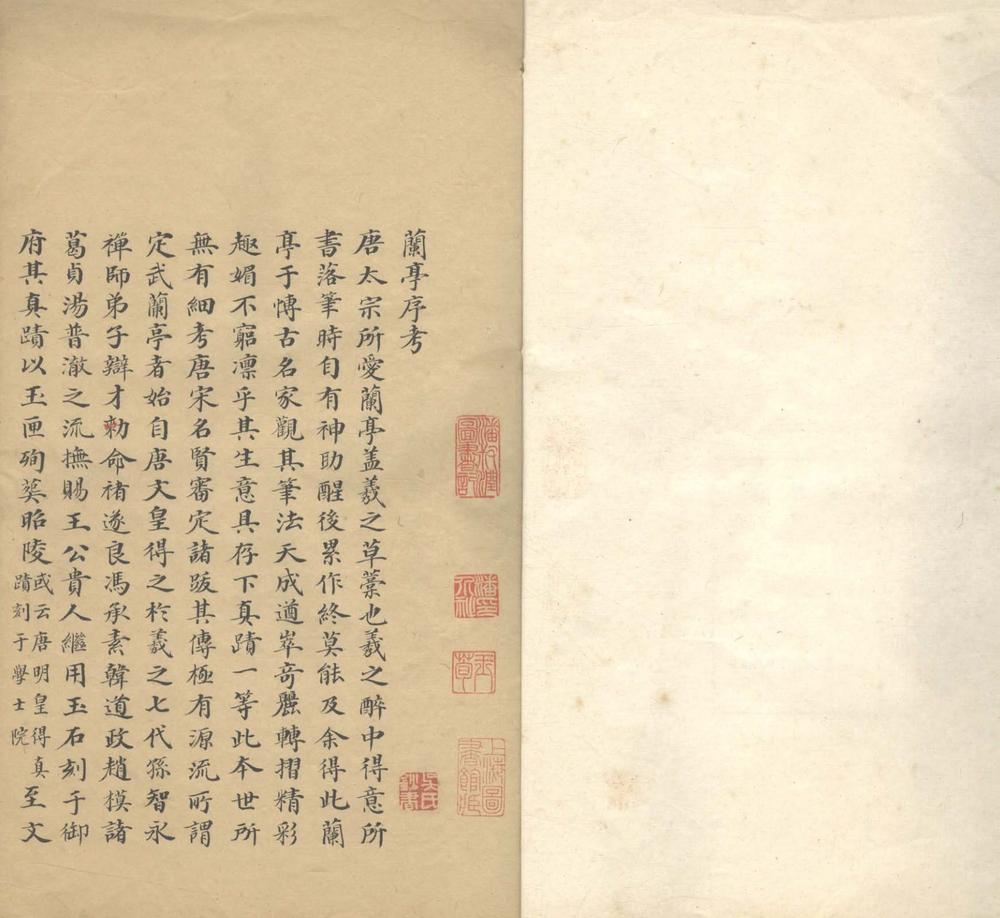 蘭亭序考
唐太宗所愛蘭亭盖羲之草藁也羲之醉中得意所
書落筆時自有神助醒後累作終莫能及余得此蘭
亭于慱古名家觀其筆法天成遒崒竒麗轉摺精彩
趣媚不窮凛乎其生意具存下真蹟一等此本世所
無有細考唐宋名賢審定諸跋其傳極有源流所謂
定武蘭亭者始自唐文皇得之於羲之七代孫智永
禅師弟子辯才勑命褚遂良馮承素韓道政趙模諸
葛貞湯普澈之流撫賜王公貴人繼用玉石刻于御
府其真蹟以玉匣殉葬昭陵
或云唐明皇得真
蹟刻于學士院
至文
吳氏
鈔書
潘承潤
圖書記
上海圖
書館藏